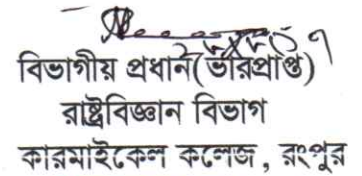 বিভাগীয় প্রধান(ভারপ্রাপ্ত)
রাষ্ট্রবিজ্ঞান বিভাগ
কারমাইকেল কলেজ, রংপুর